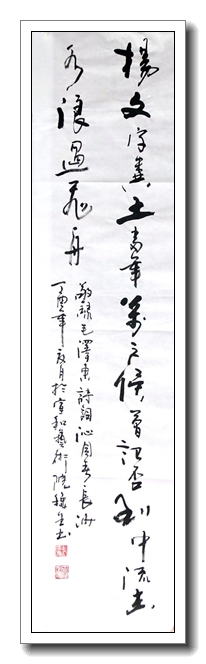 揚文字糞土當年萬戶侯曾記否到中流击
水浪遏飛舟
敬錄毛澤東詩詞沁园春長沙
丁酉年夏月於宣和藝術院